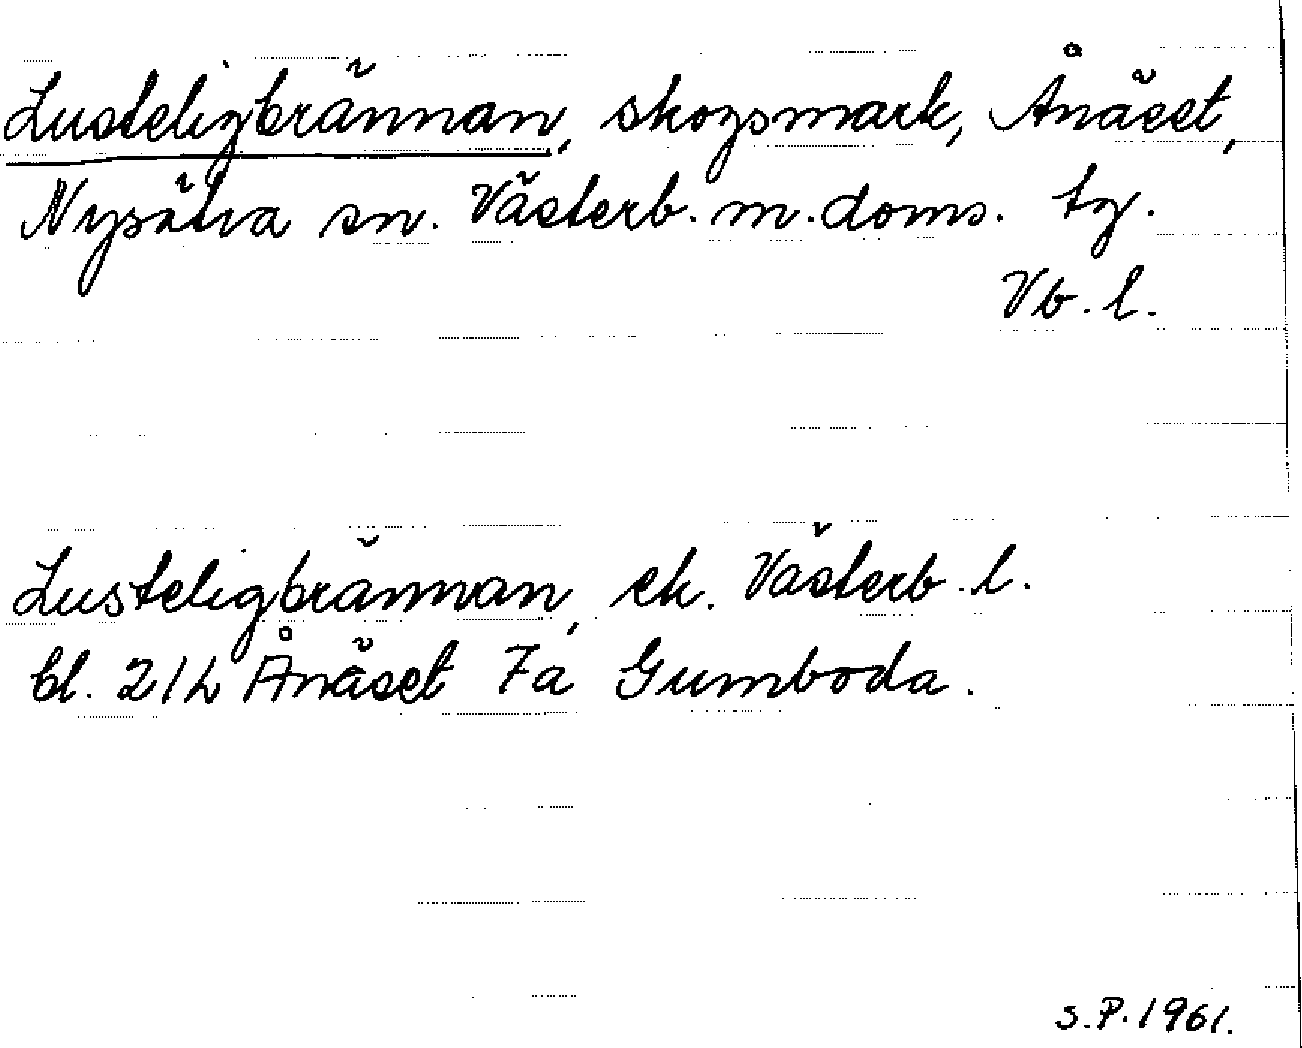 Lusteligbrännan, skogsmark, Ånäset,
Nysätra sn. Västerb. m. doms. tg.
Vb. l.
Lusteligbrännan, ek. Västerb. l.
bl. 21h Ånäset 7a Gumboda.
S.P. 1961.